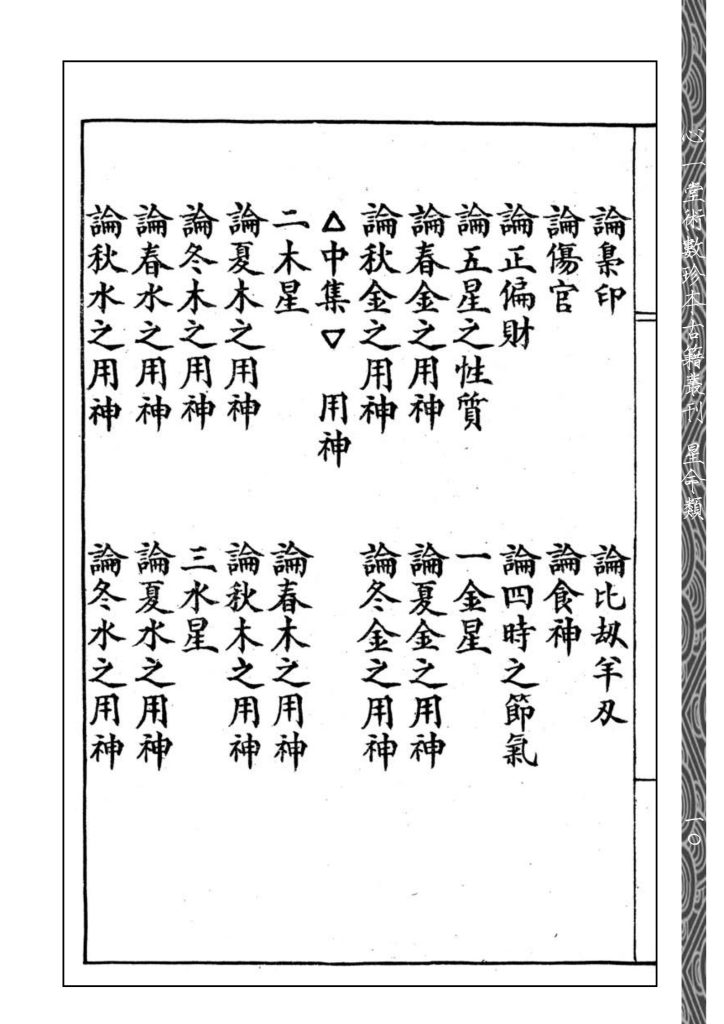 心一堂術數珍本古籍叢刊 星命類
一〇
論梟印 論比刼羊刄
論傷官 論食神
論正偏財 論四時之節氣
論五星之性質 一金星
論春金之用神 論夏金之用神
論秋金之用神 論冬金之用神
△中集▽ 用神
二木星 論春木之用神
論夏木之用神 論秋木之用神
論冬木之用神 三水星
論春水之用神 論夏水之用神
論秋水之用神 論冬水之用神